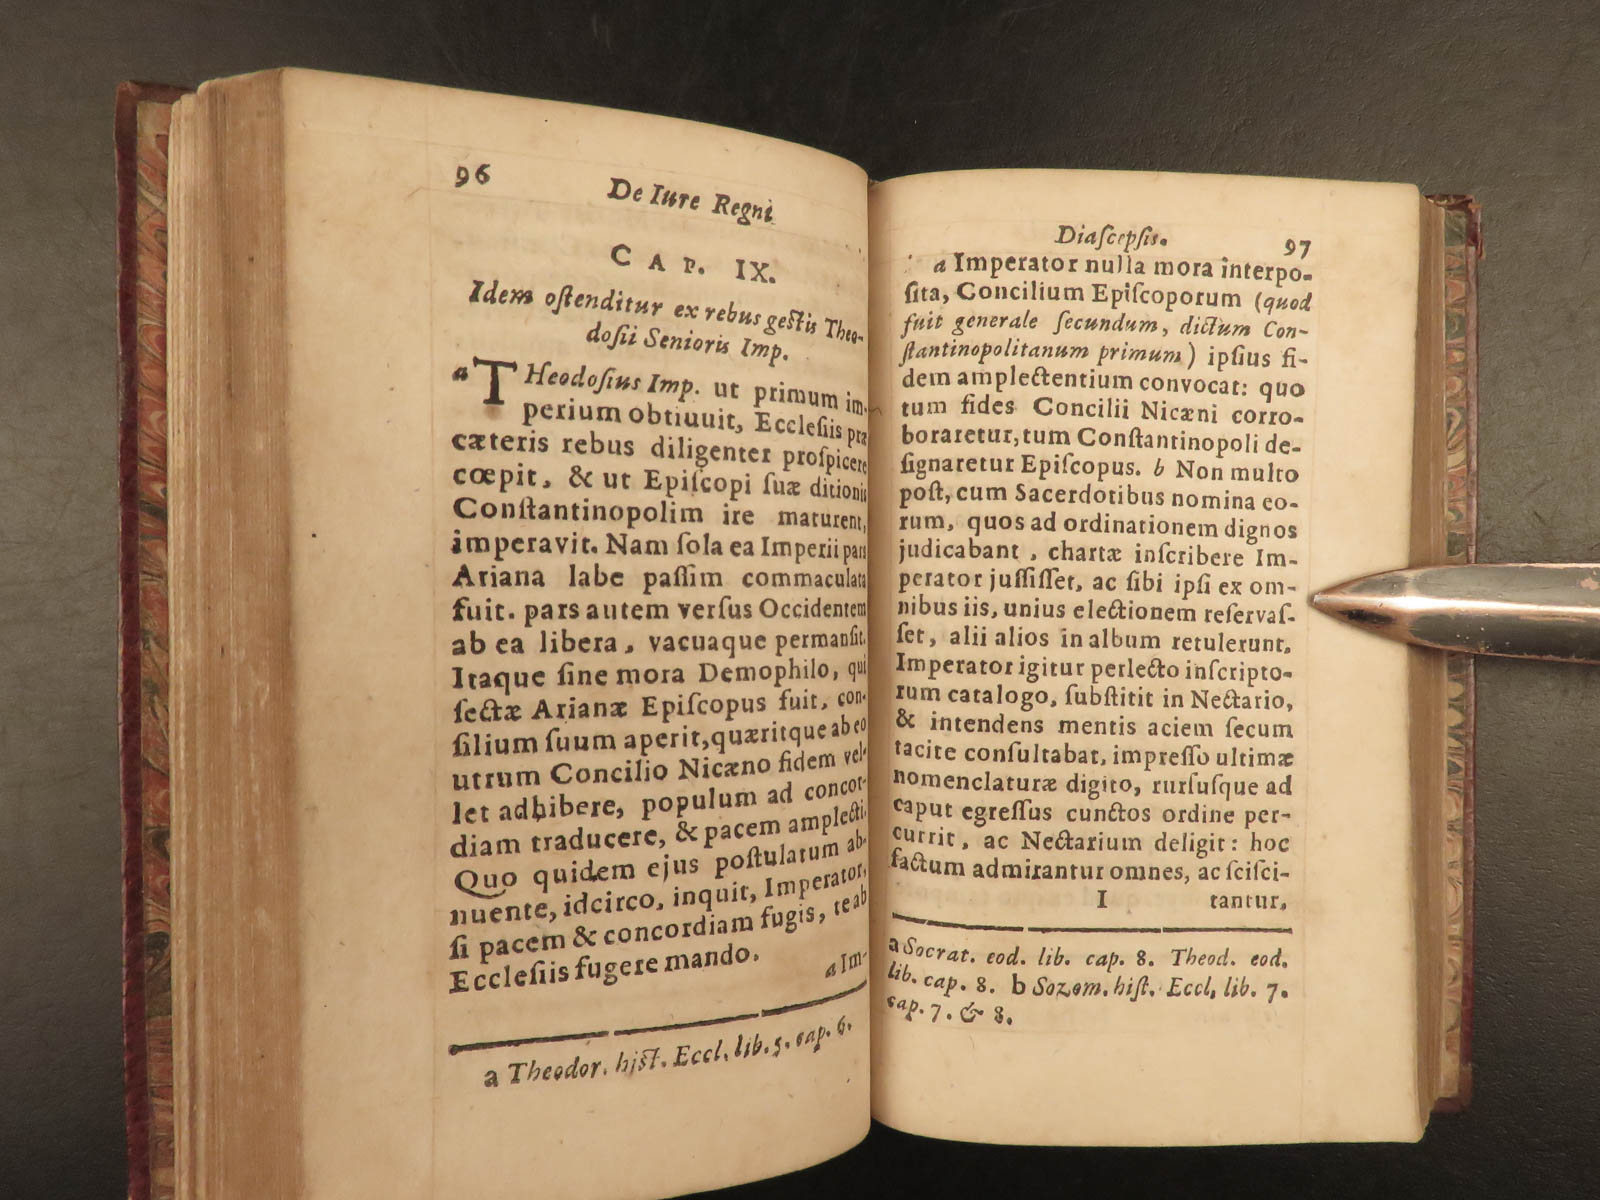 96
De Iure Regni
CAP. IX.
Idem oſtenditur ex rebus geſtis Theo-
doſii Senioris Imp.
a THeodoſius Imp. ut primum im-
perium obtiuuit, Eccleſiis præ
cæteris rebus diligenter proſpicere
cœpit, & ut Epiſcopi ſuæ ditionis
Conſtantinopolim ire maturent,
imperavit. Nam ſola ea Imperii pars
Ariana labe paſſim commaculata
fuit. pars autem verſus Occidentem
ab ea libera, vacuaque permanſit.
Itaque ſine mora Demophilo, qui
ſectæ Arianæ Epiſcopus fuit, con-
ſilium ſuum aperit, quæritque ab eo
utrum Concilio Nicæno fidem vel-
let adhibere, populum ad concor-
diam traducere, & pacem amplecti.
Quo quidem ejus poſtulatum ab-
nuente, idcirco, inquit, Imperator,
ſi pacem & concordiam fugis, te ab
Eccleſiis fugere mando.
a Im-
a Theodor. hiſt. Eccl. lib. 5. cap. 6.
Diaſcepſis.
97
a Imperator nulla mora interpo-
ſita, Concilium Epiſcoporum (quod
fuit generale ſecundum, dictum Con-
ſtantinopolitanum primum) ipſius fi-
dem amplectentium convocat: quo
tum fides Concilii Nicæni corro-
boraretur, tum Conſtantinopoli de-
ſignaretur Epiſcopus. b Non multo
poſt, cum Sacerdotibus nomina eo-
rum, quos ad ordinationem dignos
judicabant, chartæ inſcribere Im-
perator juſſiſſet, ac ſibi ipſi ex om-
nibus iis, unius electionem reſervaſ-
ſet, alii alios in album retulerunt.
Imperator igitur perlecto inſcripto-
rum catalogo, ſubſtitit in Nectario,
& intendens mentis aciem ſecum
tacite conſultabat, impreſſo ultimæ
nomenclaturæ digito, rurſuſque ad
caput egreſſus cunctos ordine per-
currit, ac Nectarium deligit: hoc
factum admirantur omnes, ac ſciſci-
I tantur,
a Socrat. eod. lib. cap. 8. Theod. eod.
lib. cap. 8. b Sozom. hiſt. Eccl. lib. 7.
cap. 7. & 8.